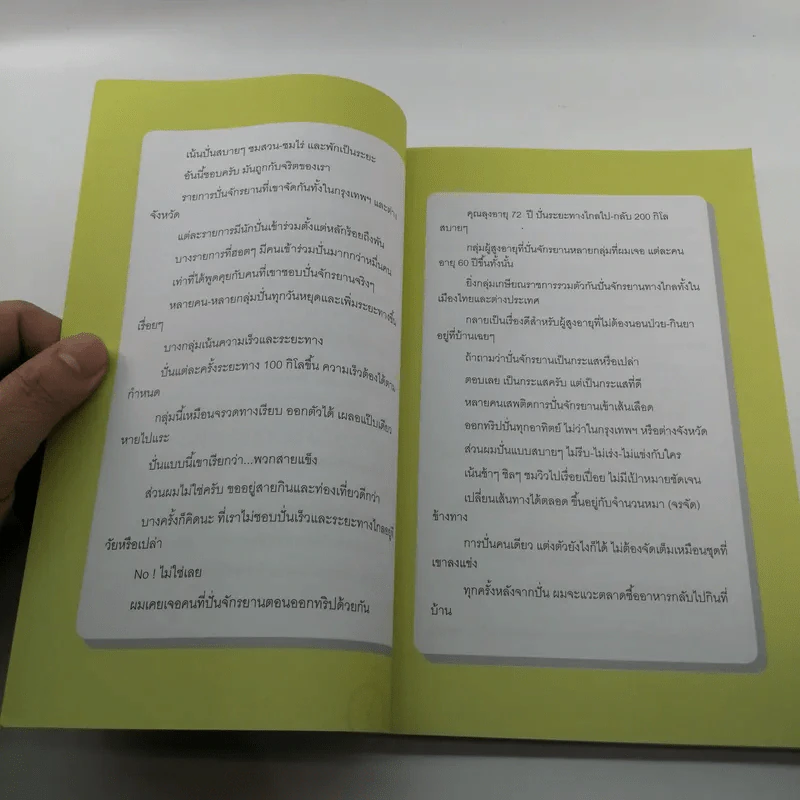 เน้นปั่นสบายๆ ชมสวน-ชมไร่ และพักเป็นระยะ
อันนี้ชอบครับ มันถูกกับจริตของเรา
รายการปั่นจักรยานที่เขาจัดกันทั้งในกรุงเทพฯ และต่าง
จังหวัด
แต่ละรายการมีนักปั่นเข้าร่วมตั้งแต่หลักร้อยถึงพัน
บางรายการที่ฮอตๆ มีคนเข้าร่วมปั่นมากกว่าหมื่นคน
เท่าที่ได้พูดคุยกับคนที่เขาชอบปั่นจักรยานจริงๆ
หลายคน-หลายกลุ่มปั่นทุกวันหยุดและเพิ่มระยะทางขึ้น
เรื่อยๆ
บางกลุ่มเน้นความเร็วและระยะทาง
ปั่นแต่ละครั้งระยะทาง 100 กิโลขึ้น ความเร็วต้องได้ตาม
กำหนด
กลุ่มนี้เหมือนจรวดทางเรียบ ออกตัวได้ เผลอแป๊บเดียว
หายไปแระ
ปั่นแบบนี้เขาเรียกว่า...พวกสายแข็ง
ส่วนผมไม่ใช่ครับ ขออยู่สายกินและท่องเที่ยวดีกว่า
บางครั้งก็คิดนะ ที่เราไม่ชอบปั่นเร็วและระยะทางไกลอยู่ที่
วัยหรือเปล่า
No ! ไม่ใช่เลย
ผมเคยเจอคนที่ปั่นจักรยานตอนออกทริปด้วยกัน
คุณลุงอายุ 72 ปี ปั่นระยะทางไกลไป-กลับ 200 กิโล
สบายๆ
กลุ่มผู้สูงอายุที่ปั่นจักรยานหลายกลุ่มที่ผมเจอ แต่ละคน
อายุ 60 ปีขึ้นทั้งนั้น
ยิ่งกลุ่มเกษียณราชการรวมตัวกันปั่นจักรยานทางไกลทั้งใน
เมืองไทยและต่างประเทศ
กลายเป็นเรื่องดีสำหรับผู้สูงอายุที่ไม่ต้องนอนป่วย-กินยา
อยู่ที่บ้านเฉยๆ
ถ้าถามว่าปั่นจักรยานเป็นกระแสหรือเปล่า
ตอบเลย เป็นกระแสครับ แต่เป็นกระแสที่ดี
หลายคนเสพติดการปั่นจักรยานเข้าเส้นเลือด
ออกทริปปั่นทุกอาทิตย์ ไม่ว่าในกรุงเทพฯ หรือต่างจังหวัด
ส่วนผมปั่นแบบสบายๆ ไม่รีบ-ไม่เร่ง-ไม่แข่งกับใคร
เน้นช้าๆ ชิลๆ ชมวิวไปเรื่อยเปื่อย ไม่มีเป้าหมายชัดเจน
เปลี่ยนเส้นทางได้ตลอด ขึ้นอยู่กับจำนวนหมา (จรจัด)
ข้างทาง
การปั่นคนเดียว แต่งตัวยังไงก็ได้ ไม่ต้องจัดเต็มเหมือนชุดที่
เขาลงแข่ง
ทุกครั้งหลังจากปั่น ผมจะแวะตลาดซื้ออาหารกลับไปกินที่
บ้าน